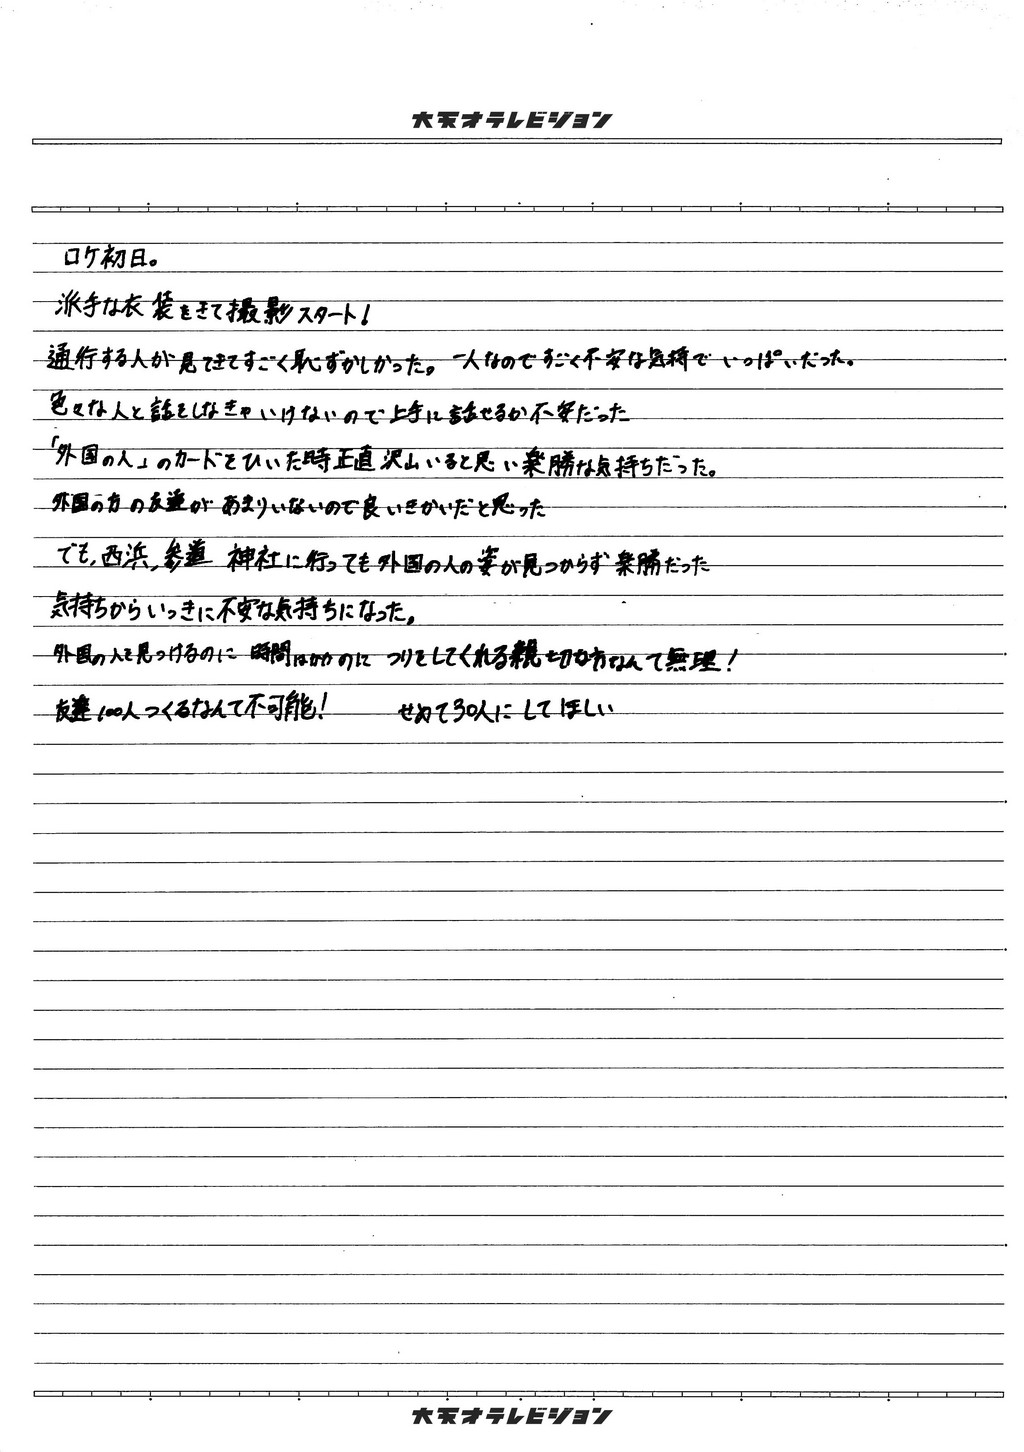 大天才テレビジョン
ロケ初日。
派手な衣装をきて撮影スタート!
通行する人が見てきてすごく恥ずかしかった。一人なのですごく不安な気持でいっぱいだった。
色々な人と話をしなきゃいけないので上手に話せるか不安だった
「外国の人」のカードをひいた時正直沢山いると思い楽勝な気持ちだった。
外国の方の友達があまりいないので良いきかいだと思った
でも、西浜、参道 神社に行っても外国の人の姿が見つからず楽勝だった
気持ちからいっきに不安な気持ちになった。
外国の人を見つけるのに 時間かかるのに つりをしてくれる親切な方なんて無理!
友達100人つくるなんて不可能! せめて30人にしてほしい
大天才テレビジョン